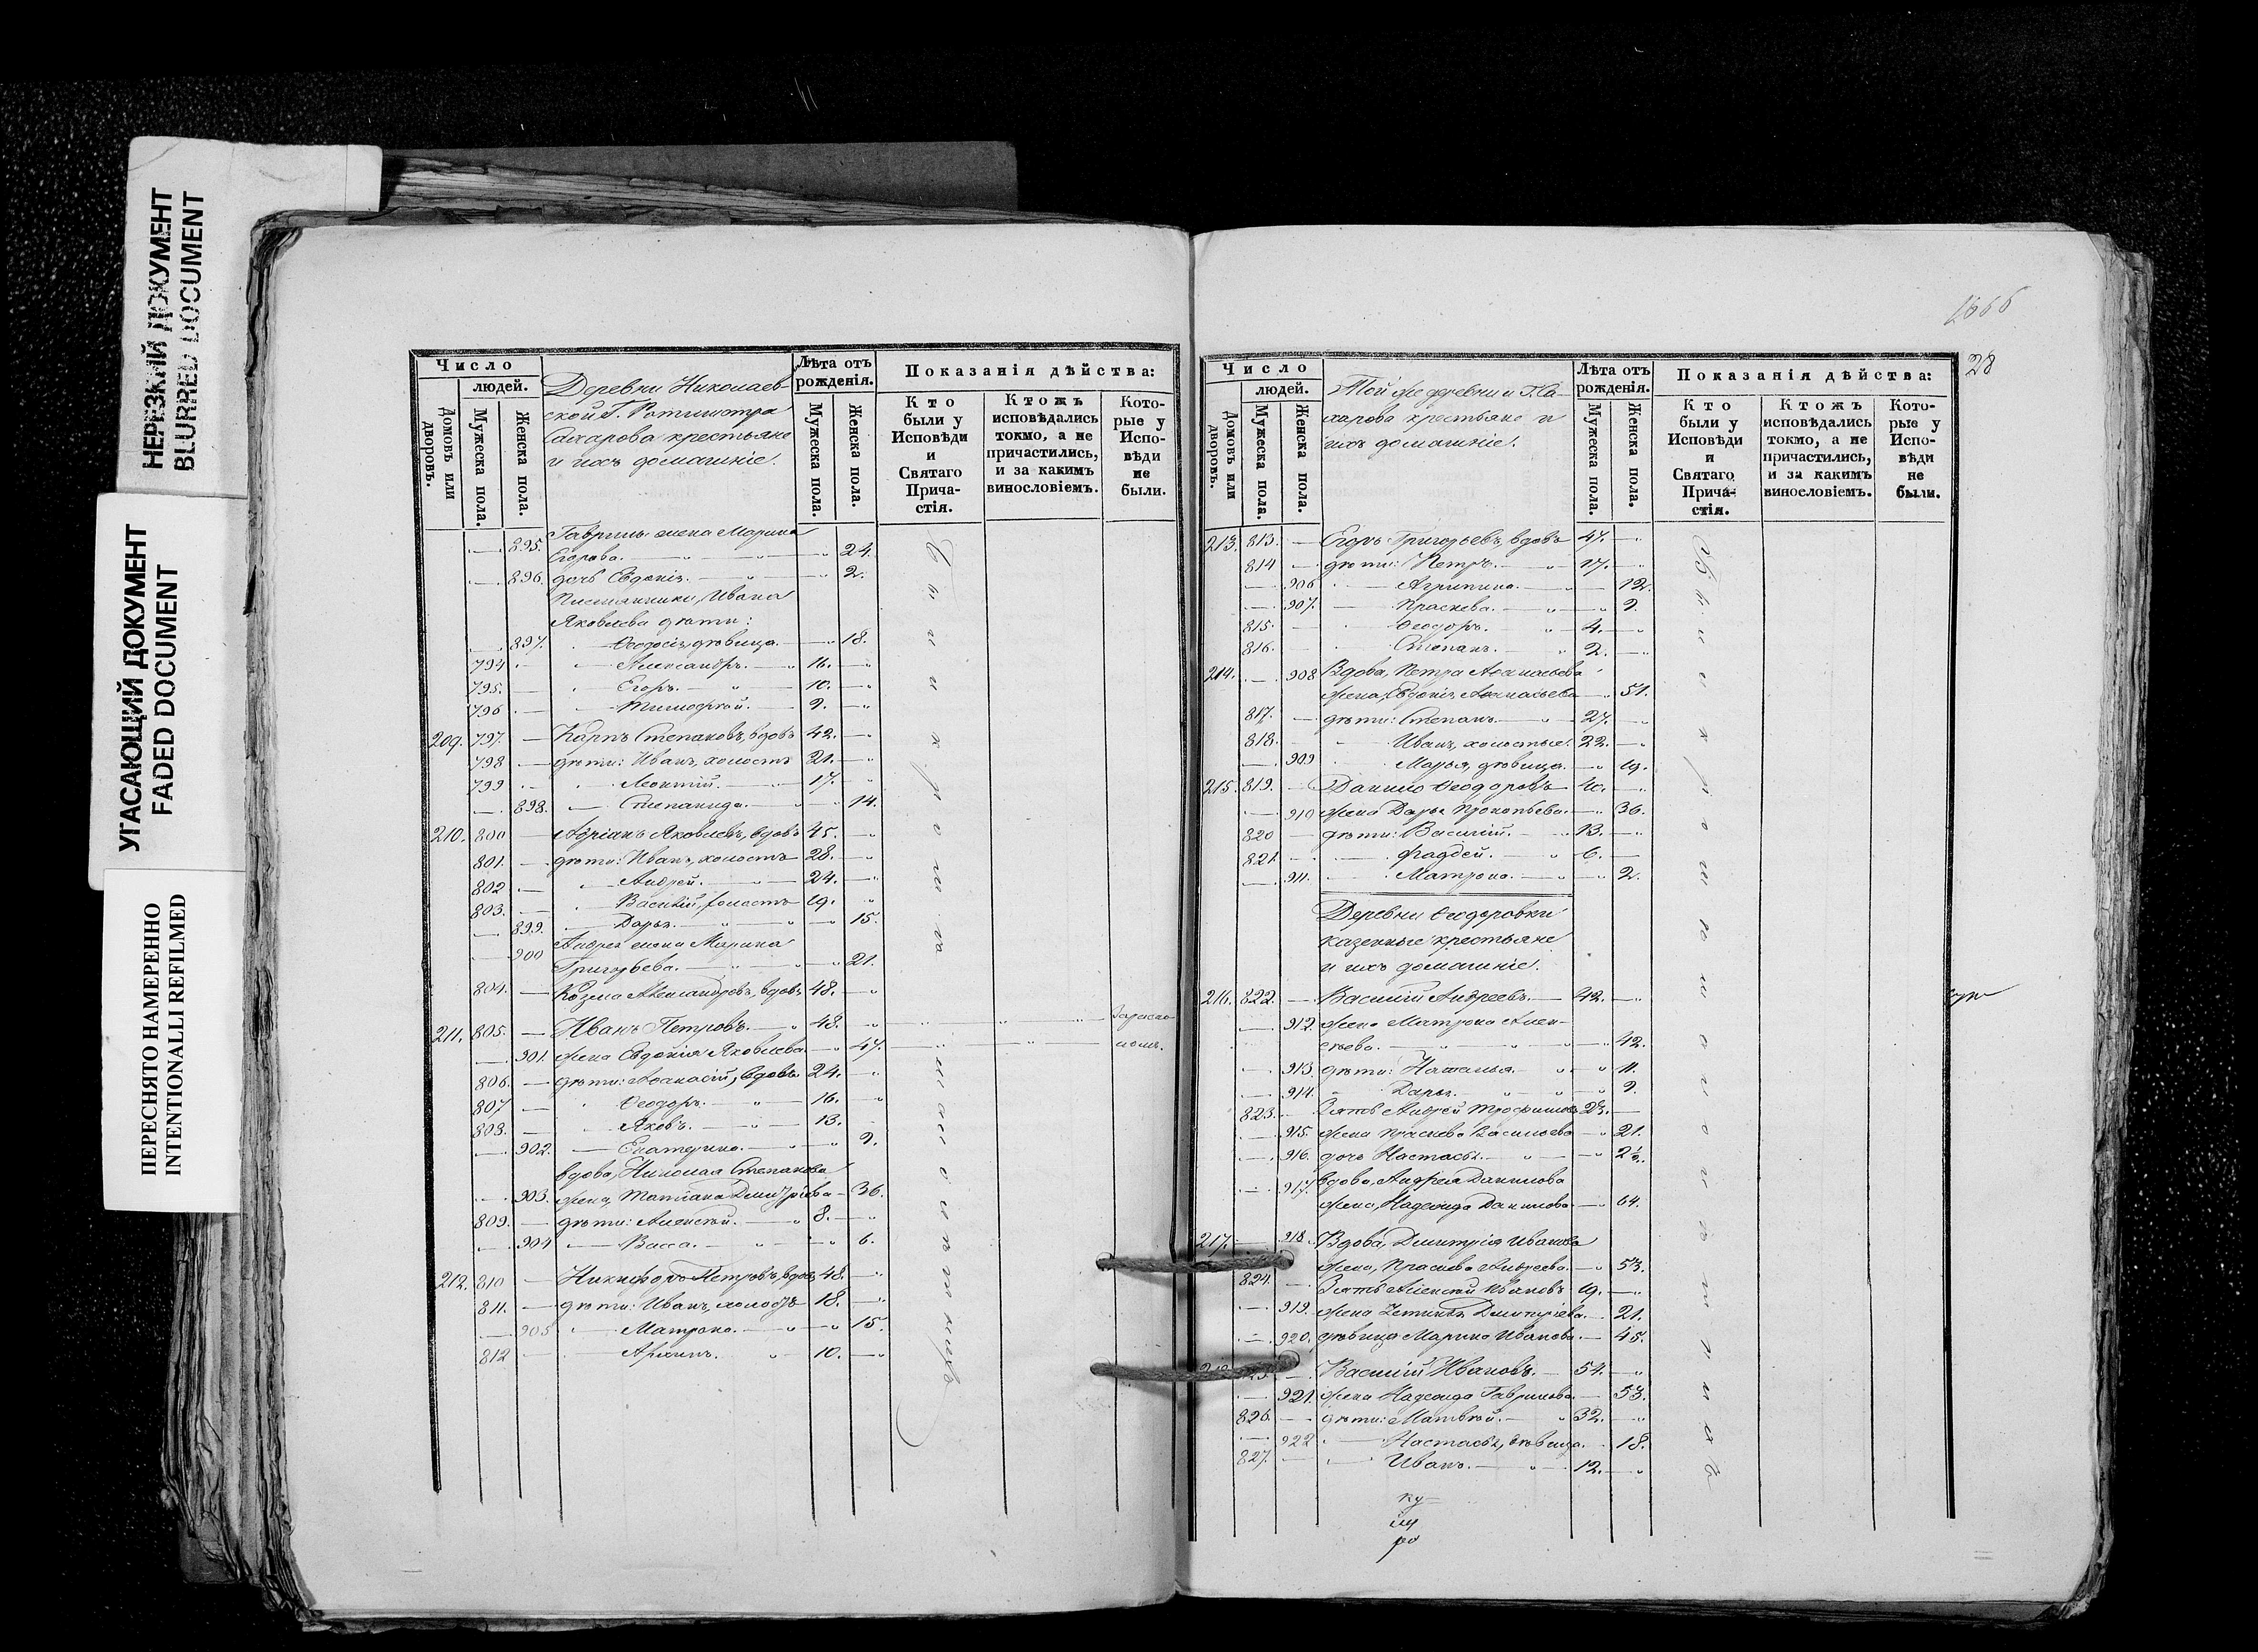 НЕРЕЗКИЙ ДОКУМЕНТ
BLURRED DOCUMENT
УГАСАЮЩИЙ ДОКУМЕНТ
FADED DOCUMENT
ПЕРЕСНЯТО НАМЕРЕННО
INTENTIONALLI REFILMED
Число
людей.
Домовъ или дворовъ.
Мужеска пола.
Женска пола.
Деревни Николаев-
ской Г. Ротмистра
Сахарова крестьяне
и ихъ домашніе.
Лѣта отъ рожденія.
Мужеска пола.
Женска пола.
Показанія дѣйства:
Кто были у Исповѣди и Святаго Прича-стія.
Ктожъ исповѣдались токмо, а не причастились, и за какимъ винословіемъ.
Кото-рые у Испо-вѣди не были.
895. Гаврилы жена Марина
Егорова. 24.
896. дочь Евдокія. 2.
Племянники, Ивана
Яковлева дѣти:
897. Ѳеодосія, дѣвица. 18.
794 Александръ. 16.
795. Егоръ. 10.
796 Тимофей. 9.
209. 797. Карпъ Степановъ, вдовъ 42.
798 дѣти: Иванъ, холостъ 21.
799 Леонтій. 17.
898. Степанида. 14.
210. 800 Адріанъ Яковлевъ, вдовъ 45.
801. дѣти: Иванъ, холостъ 28.
802 Андрей. 24.
803. Василій, холостъ 19.
899. Дарья. 15.
900 Андрея жена Марина
Григорьева. 21.
804. Козма Александровъ, вдовъ 48.
211. 805. Иванъ Петровъ. 48.
901. жена Евдокія Яковлева. 47.
806. дѣти: Аѳанасій, вдовъ 24.
807 Ѳеодоръ. 16.
808. Яковъ. 13.
902. Екатерина. 9.
вдова, Николая Степанова
903. жена, Татіана Димитріева 36.
809. дѣти: Алексѣй. 8.
904 Васса. 6.
212. 810 Никифоръ Петровъ, вдовъ 48.
811. дѣти: Иванъ, холостъ 18.
905 Матрона. 15.
812 Архипъ. 10.
28
Число
людей.
Домовъ или дворовъ.
Мужеска пола.
Женска пола.
Той же деревни и Г. Са-
харова крестьяне и
ихъ домашніе.
Лѣта отъ рожденія.
Мужеска пола.
Женска пола.
Показанія дѣйства:
Кто были у Исповѣди и Святаго Прича-стія.
Ктожъ исповѣдались токмо, а не причастились, и за какимъ винословіемъ.
Кото-рые у Испо-вѣди не были.
213. 813. Егоръ Григорьевъ, вдовъ 47.
814 дѣти: Петръ. 17.
906 Агрипина. 12.
907. Праскева. 9.
815. Ѳеодоръ. 4.
816. Степанъ. 2.
214. 908 Вдова, Петра Аѳанасьева
жена, Евдокія Аѳанасьева 51.
817. дѣти: Степанъ 27.
818. Иванъ, холостые. 22.
909 Марья, дѣвица. 19.
215. 819. Данило Ѳеодоровъ 40.
910 жена Дарья Прокопьева. 36.
820 дѣти: Василій. 13.
821. Фаддей. 6.
911. Матрона. 2.
Деревни Ѳеодоровки
казенные крестьяне
и ихъ домашніе.
216. 822. Василій Андреевъ. 42.
912. жена Матрона Алек-
сѣева. 42.
913. дѣти: Наталья. 11.
914. Дарья. 9.
823. Зять Андрей Трофимовъ 23.
915. жена Праскева Васильева 21.
916. дочь Настасья.
917. вдова, Андрея Данилова
жена, Надежда Данилова 64.
217. 918. Вдова, Димитрія Иванова
жена, Праскева Андреева. 53.
824. Зять Алексѣй Ивановъ 19.
919. жена Димитріева. 21.
920. дѣвица Марина Иванова. 45.
Василій Ивановъ. 54.
921. жена Надежда Гаврилова 53.
826. дѣти: Матвѣй. 32.
922 Настасья, дѣвица. 18.
827. Иванъ. 12.